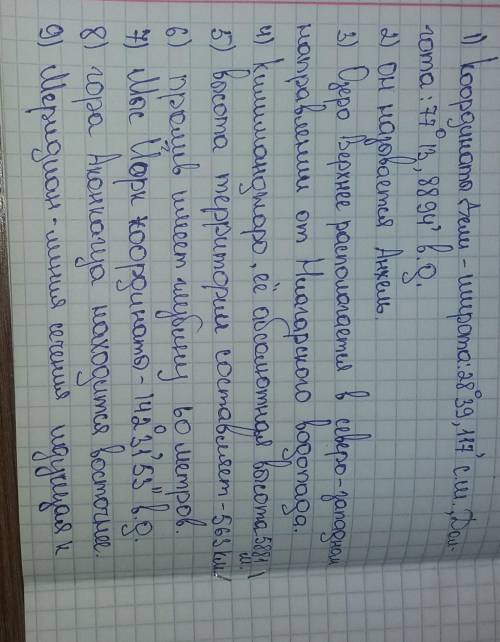 1) Координаты Дели - широта: 28°39,117' с.ш., Дол-
гота: 77°13,8894' в.д.
2) он называется Анхель.
3) Озеро Верхнее располагается в северо-западном
направлении от Ниагарского водопада.
4) Килиманджаро, её абсолютная высота 5881 м.
5) высота территории составляет - 563 км.
6) пролив имеет глубину 60 метров.
7) Мыс Йорк координаты - 142°31'53" в.д.
8) гора Аконкагуа находится восточнее.
9) Меридиан - линия сечения идущая к